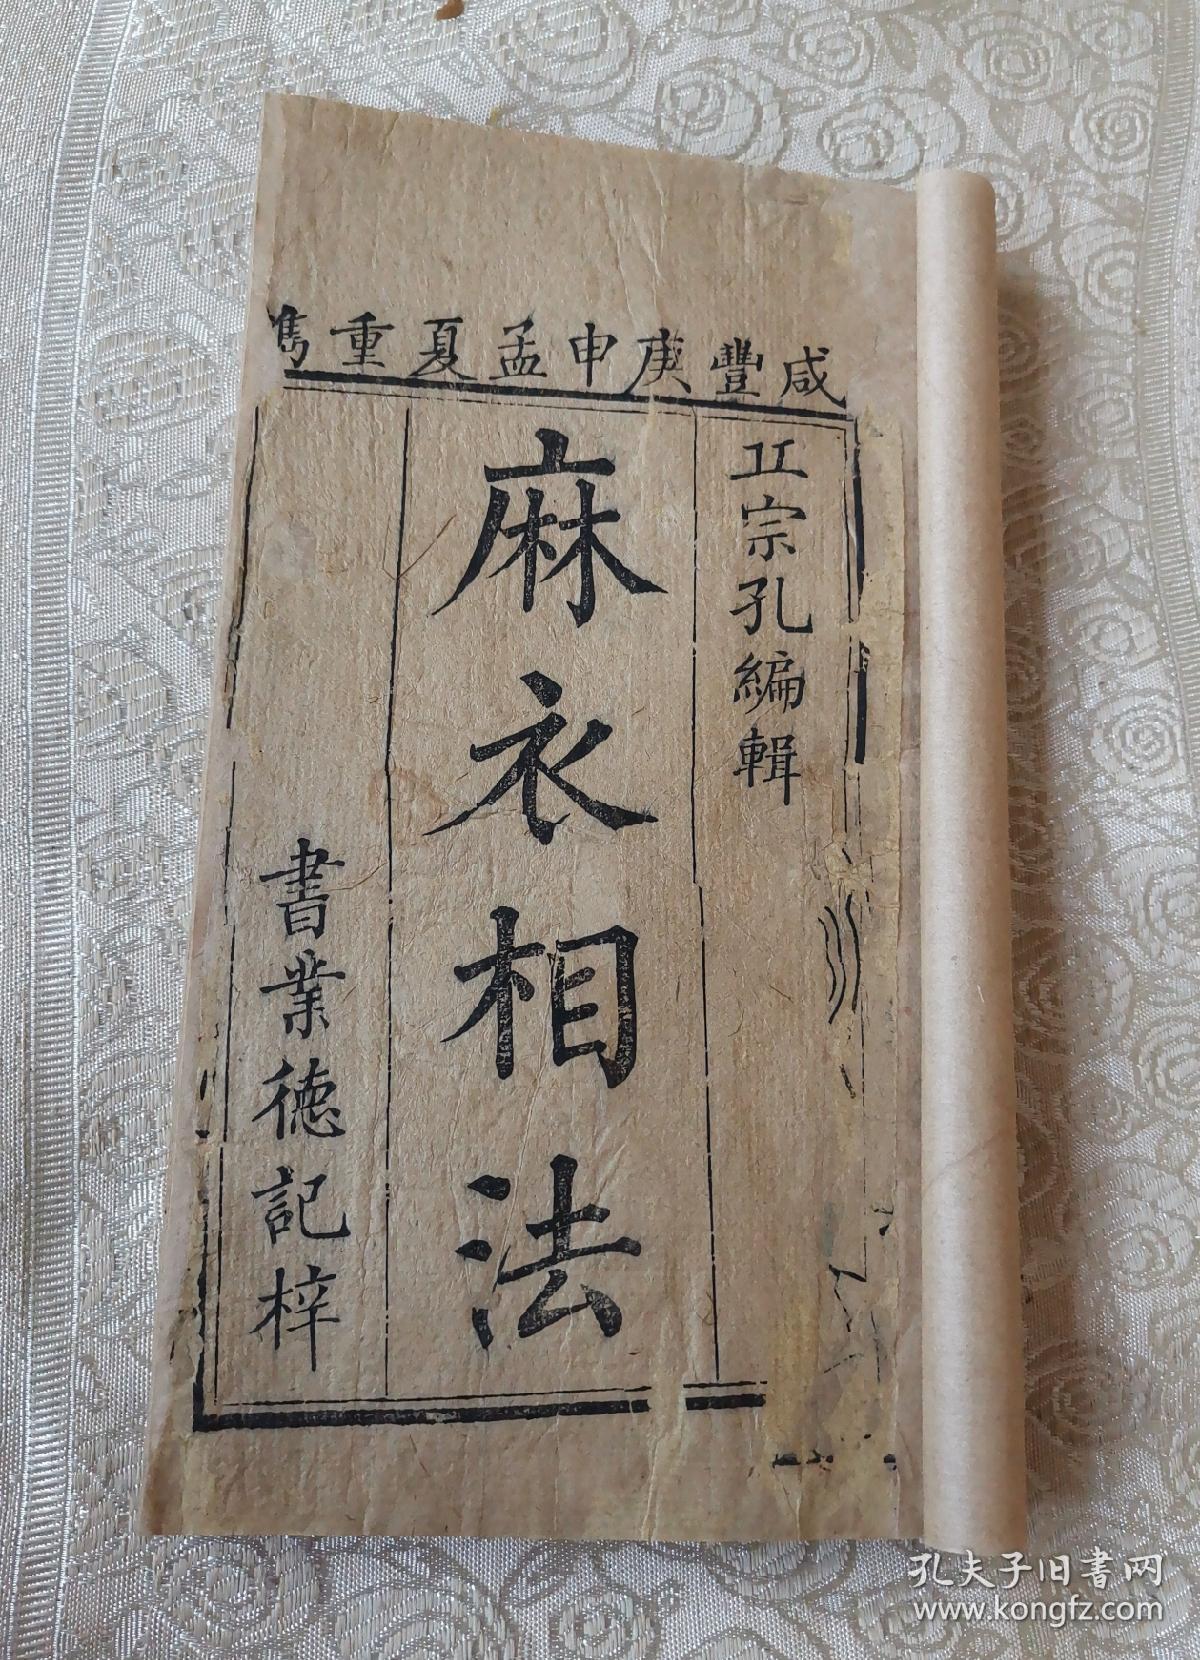 咸豐庚申孟夏重鐫
丘宗孔編輯
麻衣相法
書業德記梓
孔夫子旧書网
www.kongfz.com